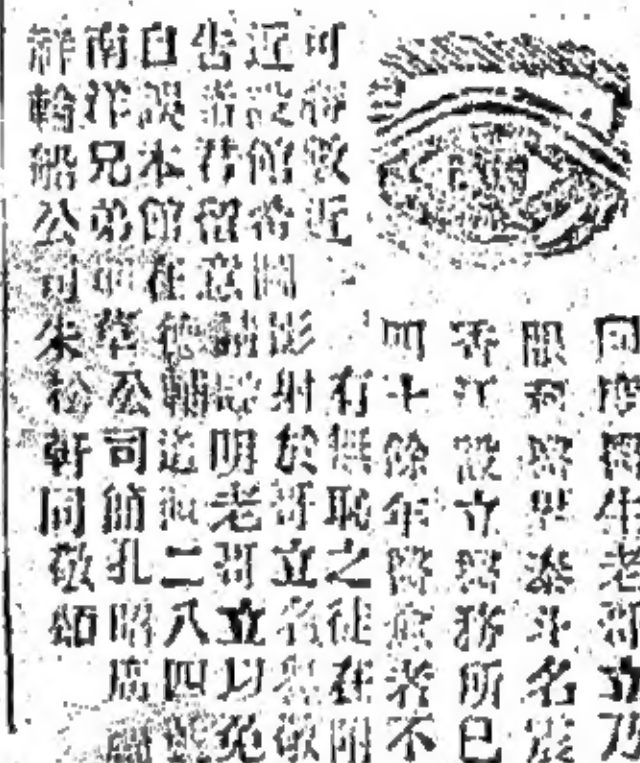 醫生老哥立乃
眼科醫界泰斗名震
香江設立醫務所已
四十餘年醫愈者不
可數近有無恥之徒在附
近設館希圖影射於哥立名敬
告諸君留意請認明老哥立以免
自誤本館在德輔道二八四號
南洋兄弟草公司簡孔昭廣
祥輪船公司朱松軒同敬頌